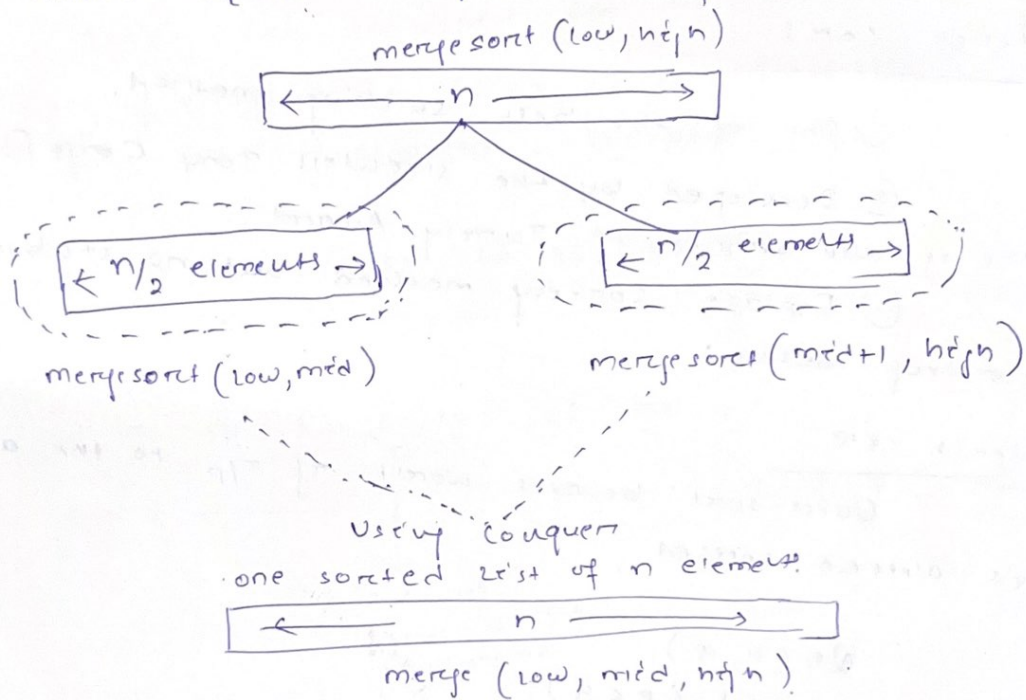 mergesort (low, high)
n
n/2 elements
n/2 elements
mergesort (low, mid)
mergesort (mid+1, high)
Using Conquer
one sorted list of n element.
n
merge (low, mid, high)